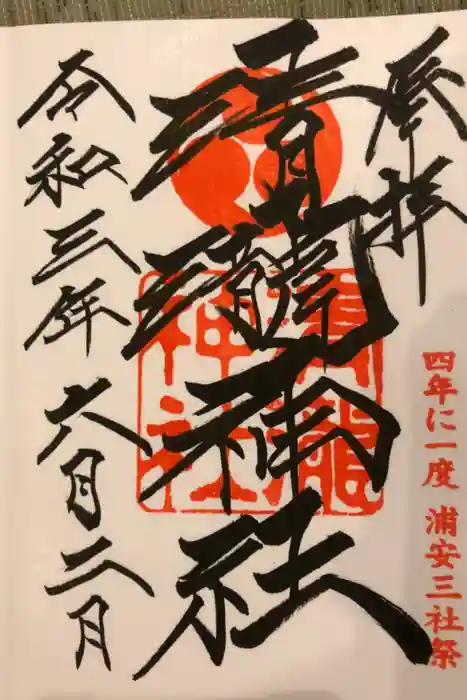 奉拝
四年に一度 浦安三社祭
清瀧神社
清瀧
神社
令和三年 六月二日